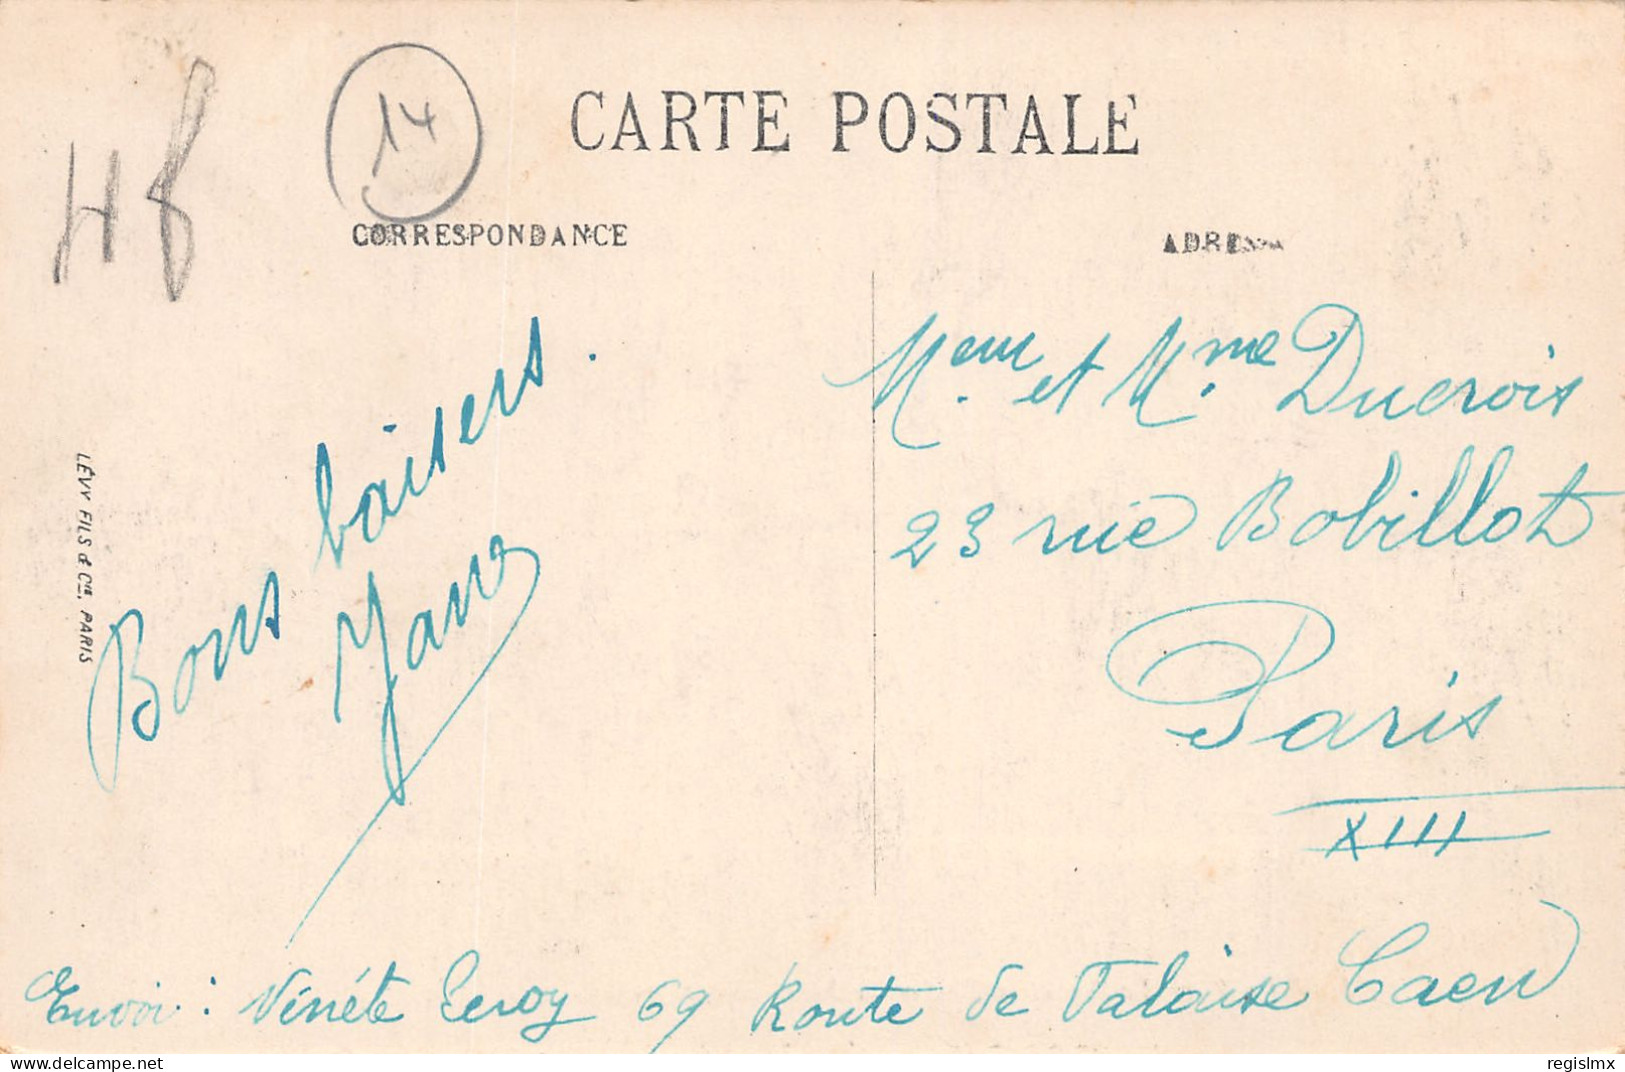 48
14
CARTE POSTALE
CORRESPONDANCE
ADRESSE
Bons baisers.
LÉVY FILS & Cie, PARIS
Meur et Mme Ducrois
23 rue Bobillot
Paris
XIII
Envoi : Vinéte Leroy 69 Route de Falaise Caen
delcampe.net
regislmx